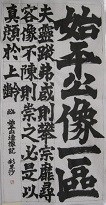 始平公像一區
夫靈蹤弗啟則攀宗靡尋
容像不陳則崇之必㞢以
真顏於上齡